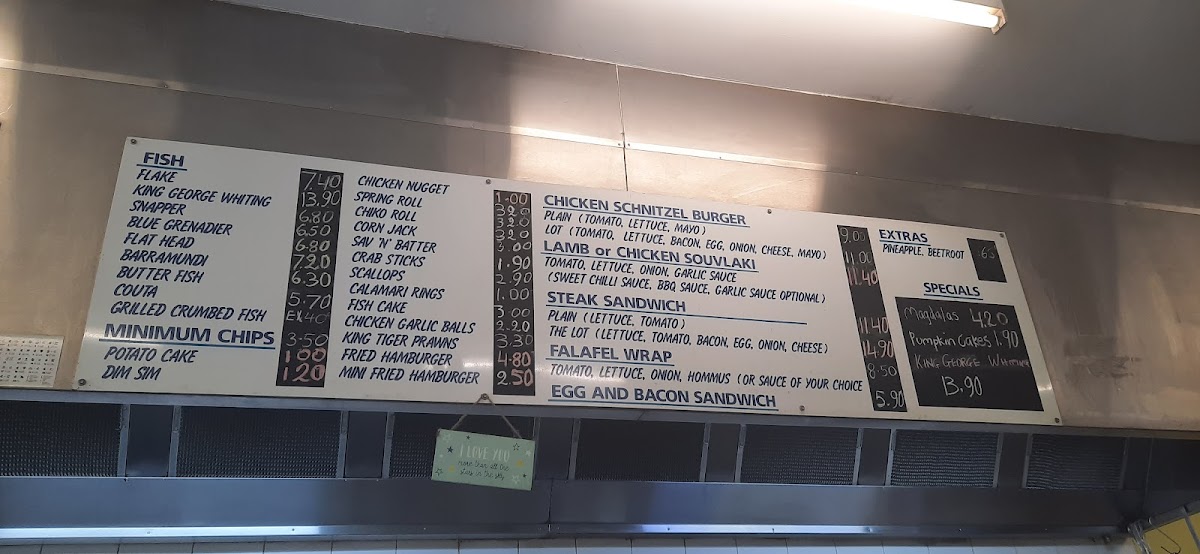 FISH
FLAKE 7.40
KING GEORGE WHITING 13.90
SNAPPER 6.80
BLUE GRENADIER 6.50
FLAT HEAD 6.80
BARRAMUNDI 7.20
BUTTER FISH 6.30
COUTA 5.70
GRILLED CRUMBED FISH EX 40
MINIMUM CHIPS 3.50
POTATO CAKE 1.00
DIM SIM 1.20
CHICKEN NUGGET 1.00
SPRING ROLL 3.20
CHIKO ROLL 3.20
CORN JACK 3.20
SAV 'N' BATTER
CRAB STICKS 1.90
SCALLOPS 2.90
CALAMARI RINGS 1.00
FISH CAKE 3.00
CHICKEN GARLIC BALLS 2.20
KING TIGER PRAWNS 3.30
FRIED HAMBURGER 4.80
MINI FRIED HAMBURGER 2.50
CHICKEN SCHNITZEL BURGER
PLAIN (TOMATO, LETTUCE, MAYO) 9.00
LOT (TOMATO, LETTUCE, BACON, EGG, ONION, CHEESE, MAYO) 11.00
LAMB or CHICKEN SOUVLAKI 11.40
TOMATO, LETTUCE, ONION, GARLIC SAUCE
(SWEET CHILLI SAUCE, BBQ SAUCE, GARLIC SAUCE OPTIONAL)
STEAK SANDWICH
PLAIN (LETTUCE, TOMATO) 11.40
THE LOT (LETTUCE, TOMATO, BACON, EGG, ONION, CHEESE) 14.90
FALAFEL WRAP 8.50
TOMATO, LETTUCE, ONION, HOMMUS (OR SAUCE OF YOUR CHOICE
EGG AND BACON SANDWICH 5.90
EXTRAS
PINEAPPLE, BEETROOT
SPECIALS
Magdalas 4.20
Pumpkin Cakes 1.90
KING GEORGE WHITING
13.90
I LOVE YOU
more than all the
stars in the sky